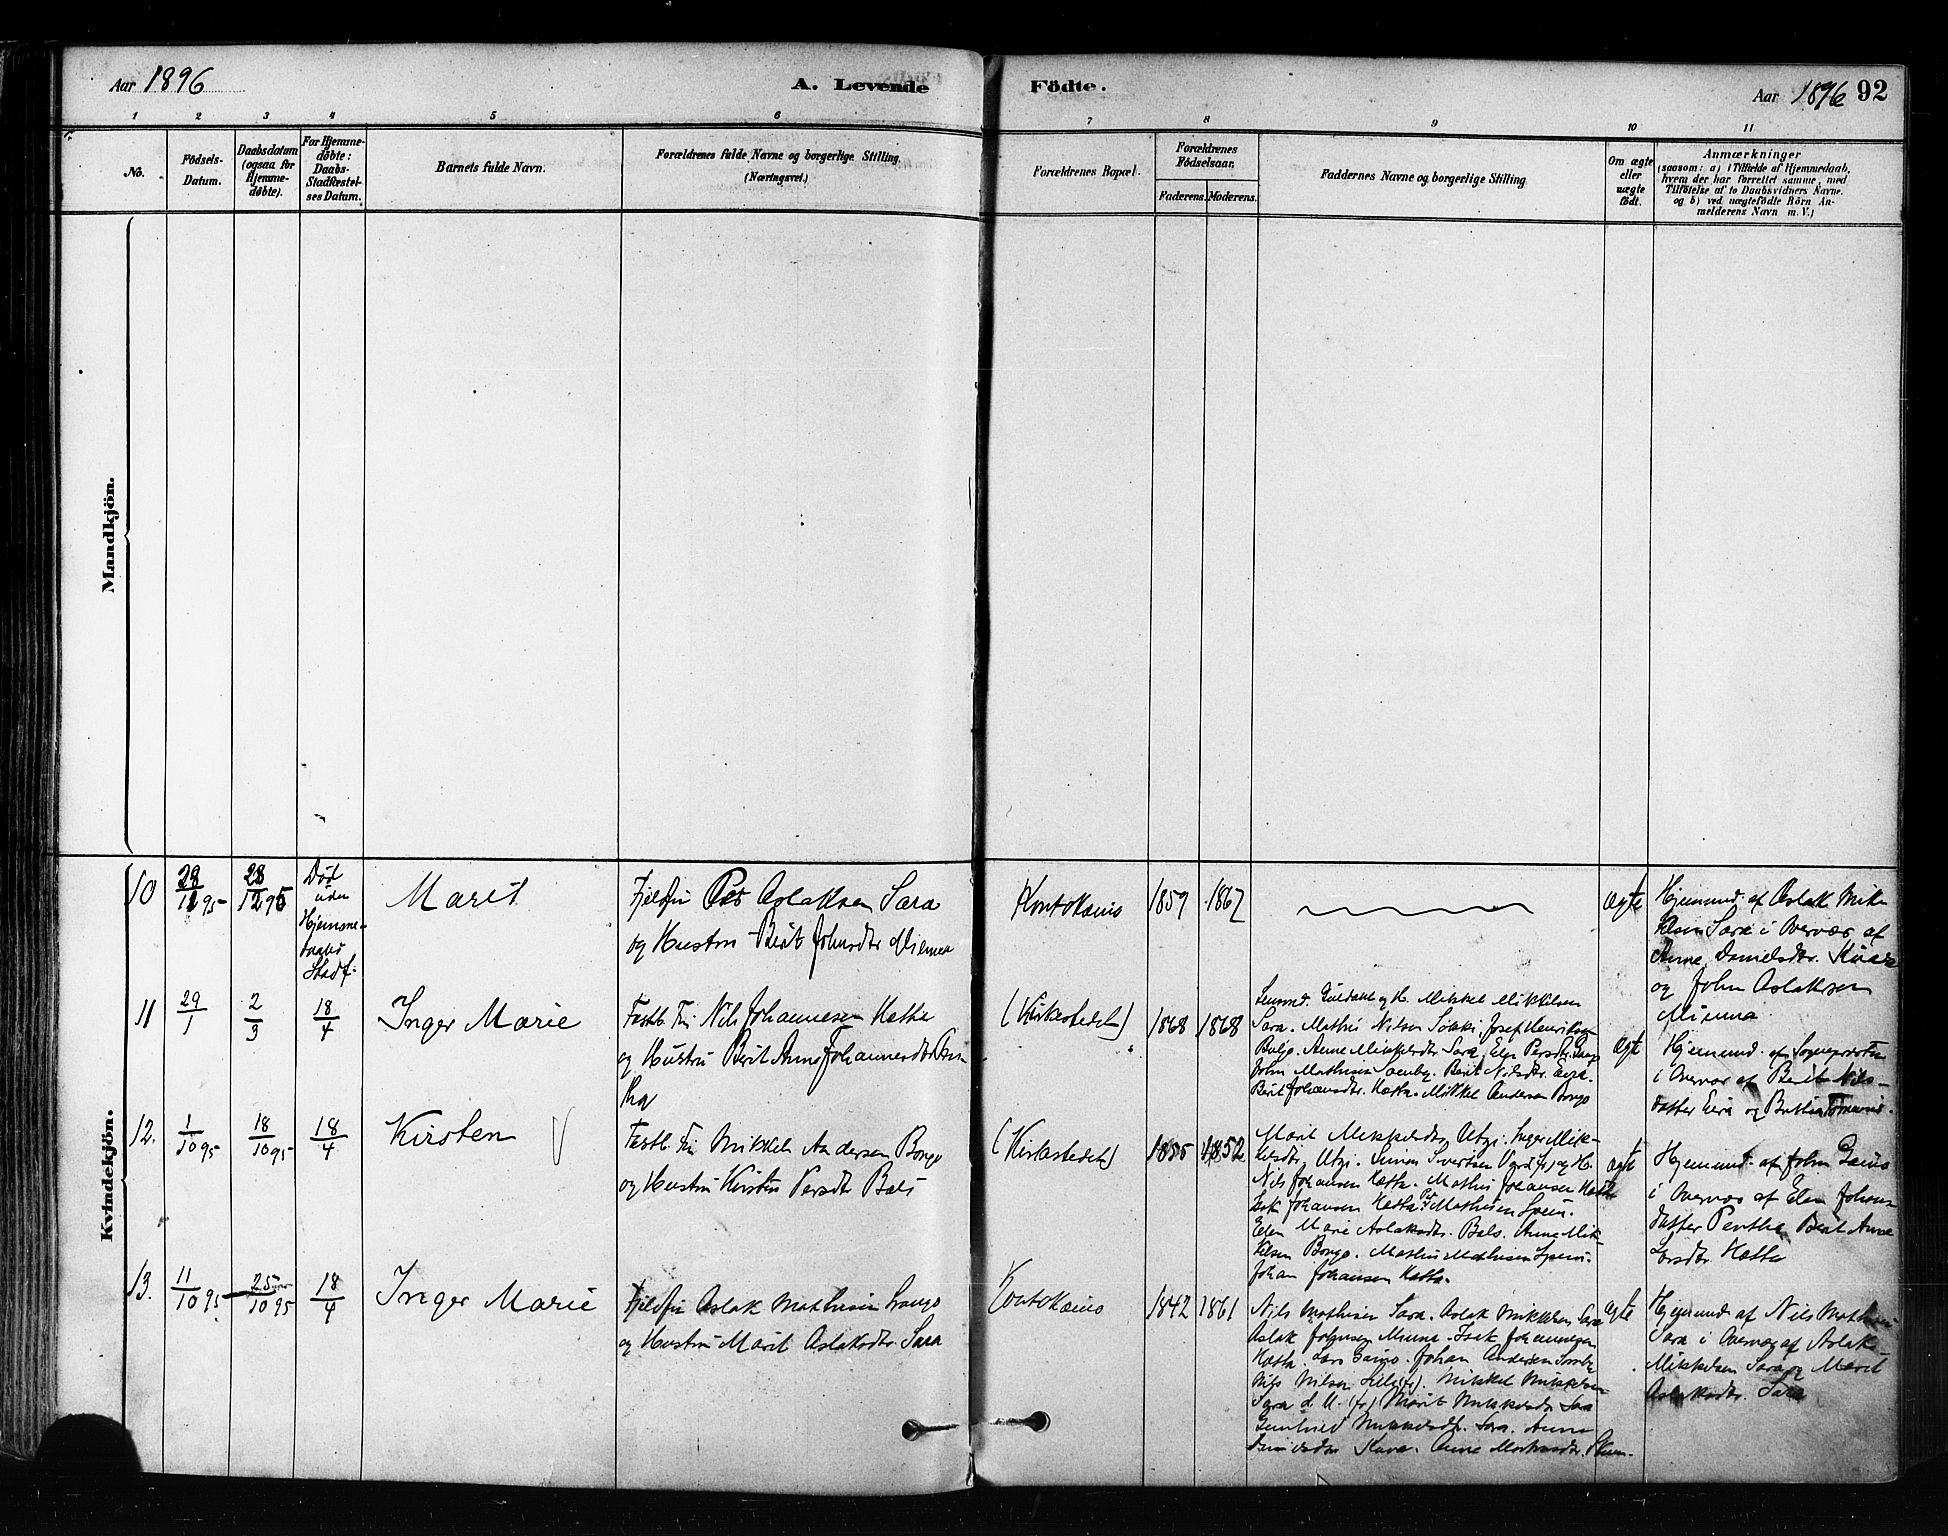 Aar 1896
A. Levende
Födte.
Aar 1896 92
1 2 3 4 5 6 7 8 9 10 11
No.
Födsels-
Datum.
Daabsdatum
(ogsaa for
Hjemme-
döbte).
For Hjemme-
döbte:
Daabs-
Stadfæstel-
ses Datum.
Barnets fulde Navn.
Forældrenes fulde Navne og borgerlige Stilling.
(Næringsvei.)
Forældrenes Bopæl.
Forældrenes
Födselsaar.
Faderens. Moderens.
Faddernes Navne og borgerlige Stilling
Om ægte
eller
uægte
födt.
Anmærkninger
(saasom: a) i Tilfælde af Hjemmedaab,
hvem der har forrettet samme, med
Tilföielse af to Daabsvidners Navne.
og b) ved uægtefödte Börn An-
melderens Navn m. V.)
Mandkjön.
Kvindekjön.
10
29/12 95
28/12 95
Död
uden
Hjemme-
daabs
Stadf.
Marit
Fjeldfin Per Aslaksen Sara
og Hustru Berit Johnsdtr Mienna
Kontokeino
1859
1867
ægte
Hjemmed. af Aslak Mik-
kelsen Sara i Overvær af
Anne Danielsdtr.
og John Aslaksen
Mienna
11
29/1
2/3
18/4
Inger Marie
Fastb. Fin Nils Johannesen Hætta
og Hustru Berit Anne Johannesdtr
(Kirkestedet)
1868
1868
Mikkel Mikkelsen
Sara. Mathis Nilsen
Anne Mikkelsdtr Sara, Elen Persdtr.
John Mathisen Berit Nilsdtr. Eira.
Berit Johansdtr. Hætta. Mikkel Andersen Bongo
ægte
Hjemmed. af Sognepresten
i Overvær af Berit Nils-
datter Eira og
12.
1/10 95
18/10 95
18/4
Kirsten
Fastb. Fin Mikkel Andersen Bongo
og Hustru Kirsten Persdtr Bals
(Kirkestedet)
1855
1852
Marit Mikkelsdtr. Utzi. Inger Mik-
kelsdtr. Utzi. Simon
Nils Johansen Hætta. Mathis Johansen Hætta
Isak Johansen Hætta. Per Mathisen Spein.
Elen Marie Aslaksdtr. Bals. Anne Mik-
kelsen Bongo. Mathis Mathisen Spein.
Johan Johansen Hætta.
ægte
Hjemmed. af John Gaino
i Overvær af Elen Johans-
datter Pentha Berit Anne
Larsdtr. Hætta
13.
11/10 95
25/10 95
18/4
Inger Marie
Fjeldfin Aslak Mathisen
og Hustru Marit Aslaksdtr Sara
Kontokeino
1842
1861
Nils Mathisen Sara. Aslak Mikkelsen Sara
Aslak Johnsen Mienna. Isak Johannesen
Hætta. Lars Gaino. Johan Andersen
Nils Nilsen Mikkel Mikkelsen
Sara d. Y. Marit Mikkelsdtr Sara
Mikkelsdtr. Sara. Anne
Anne
ægte
Hjemmed. af Nils Mathisen
Sara i Overvær af Aslak
Mikkelsen Sara og Marit
Aslaksdtr. Sara